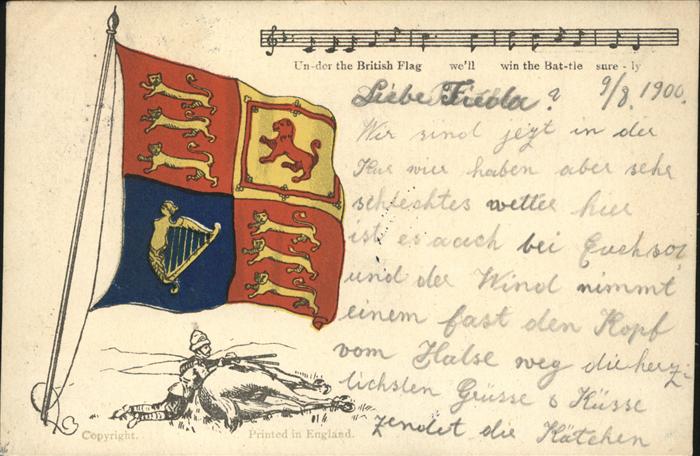 Un-der the British Flag we'll win the Bat-tle sure - ly
Liebe Frieda? 9/8. 1900.
Wir sind jezt in der
Kur wier haben aber sehr
schlechtes wetter hier
ist es auch bei Euch so?
und der Wind nimmt
einem fast den Kopf
vom Halse weg die herz-
lichsten Grüsse & Küsse
zendet die Kätchen
Copyright. Printed in England.